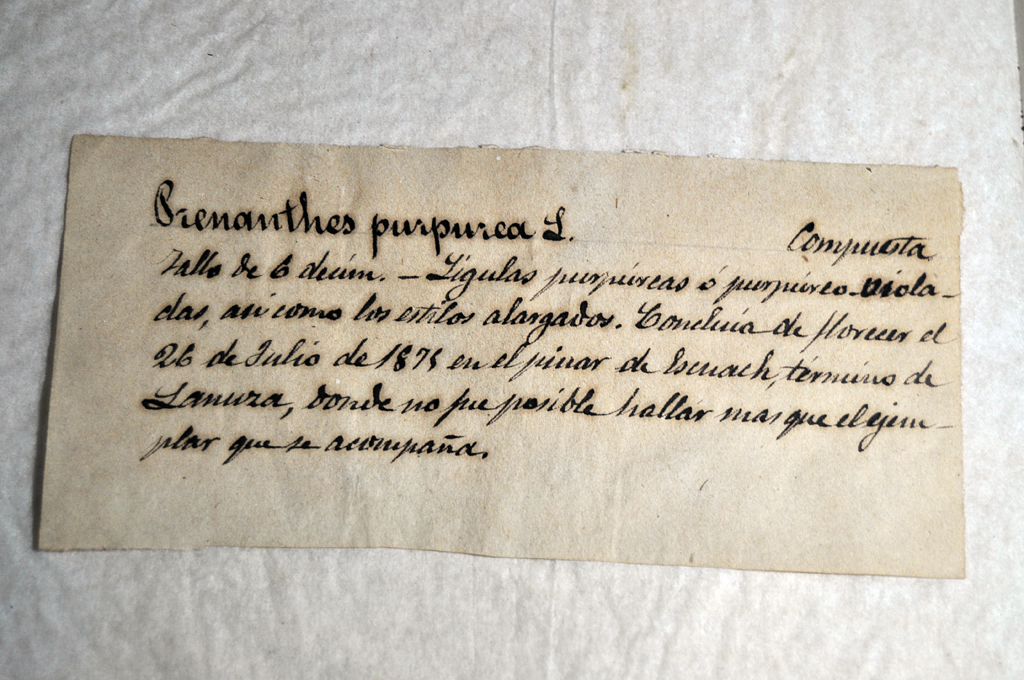 Prenanthes purpurea L.
Compuesta
Tallo de 6 decím. - Lígulas purpúreas ó purpúreo-viola-
das, así como los estilos alargados. Concluía de florecer el
26 de Julio de en el pinar de Escuach, término de
Lanuza, donde no fue posible hallar mas que el ejem-
plar que se acompaña.